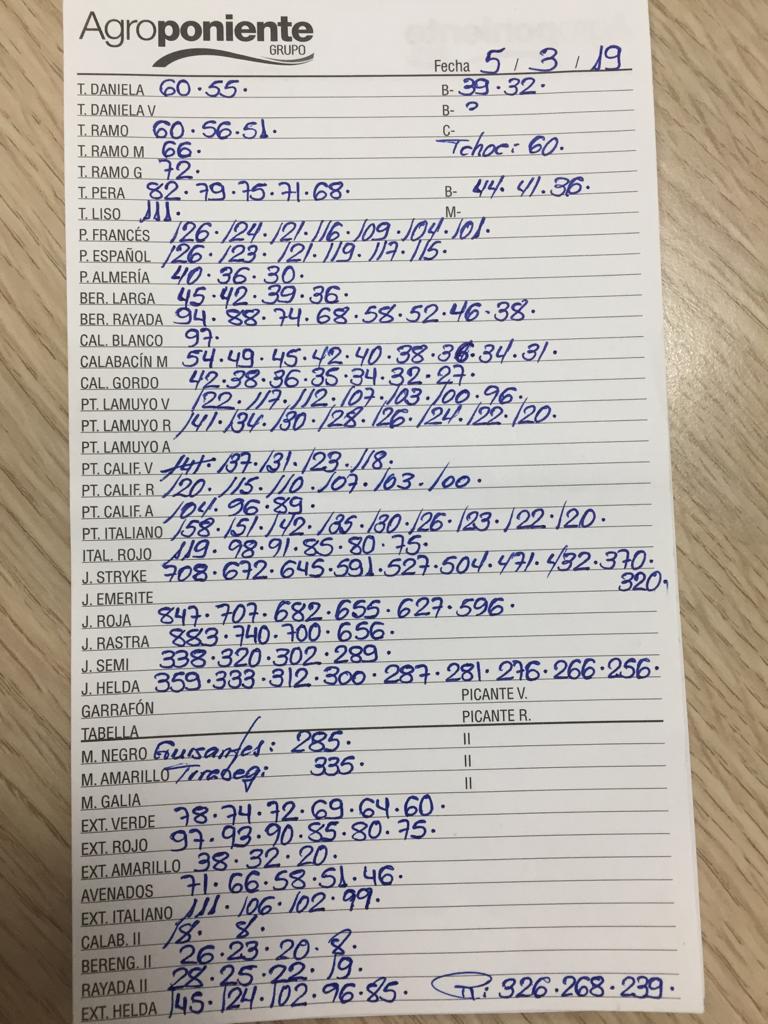 Agroponiente
GRUPO
Fecha 5 / 3 / 19
T. DANIELA 60·55· B- 39·32·
T. DANIELA V B-
T. RAMO 60·56·51· C-
T. RAMO M 66· Tchoc: 60·
T. RAMO G 72·
T. PERA 82·79·75·71·68· B- 44·41·36·
T. LISO 111· M-
P. FRANCÉS 126·124·121·116·109·104·101·
P. ESPAÑOL 126·123·121·119·117·115·
P. ALMERÍA 40·36·30·
BER. LARGA 45·42·39·36·
BER. RAYADA 94·88·74·68·58·52·46·38·
CAL. BLANCO 97·
CALABACÍN M 54·49·45·42·40·38·36·34·31·
CAL. GORDO 42·38·36·35·34·32·27·
PT. LAMUYO V 122·117·112·107·103·100·96·
PT. LAMUYO R 141·134·130·128·126·124·122·120·
PT. LAMUYO A
PT. CALIF. V 141·137·131·123·118·
PT. CALIF. R 120·115·110·107·103·100·
PT. CALIF. A 104·96·89·
PT. ITALIANO 158·151·142·135·130·126·123·122·120·
ITAL. ROJO 119·98·91·85·80·75·
J. STRYKE 708·672·645·591·527·504·471·432·370·
320·
J. EMERITE
J. ROJA 847·707·682·655·627·596·
J. RASTRA 883·740·700·656·
J. SEMI 338·320·302·289·
J. HELDA 359·333·312·300·287·281·276·266·256·
GARRAFÓN PICANTE V.
TABELLA PICANTE R.
M. NEGRO : 285· II
M. AMARILLO : 335· II
M. GALIA II
EXT. VERDE 78·74·72·69·64·60·
EXT. ROJO 97·93·90·85·80·75·
EXT. AMARILLO 38·32·20·
AVENADOS 71·66·58·51·46·
EXT. ITALIANO 111·106·102·99·
CALAB. II 18· 8·
BERENG. II 26·23·20·8·
RAYADA II 28·25·22·19·
EXT. HELDA 145·124·102·96·85· II: 326·268·239·